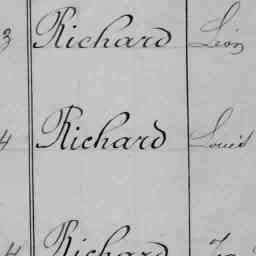 3 Richard Léon
4 Richard Louis
4 Richard